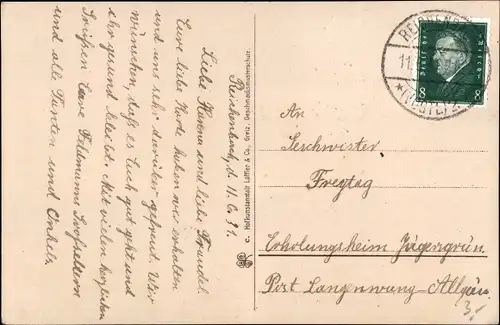 Reichenbach, d. 11. 6. 31.
Liebe Hanna und liebe Traudel.
Eure liebe Karte haben wir erhalten
und uns sehr darüber gefreut. Wir
wünschen, daß es Euch gut geht und
ihr gesund bleibt. Mit vielen herzlichen
Grüßen Eure Feldmanns Großeltern
und alle Tanten und Onkels
c. Hofkunstanstalt Löffler & Co., Greiz. Geschmacksmusterschutz.
REICHENB
11.
(VOGTL) 2
DEUTSCHES REICH
8 8
An
Geschwister
Freytag
Erholungsheim Jägengrün
Post Langenwang-Allgäu
3,-